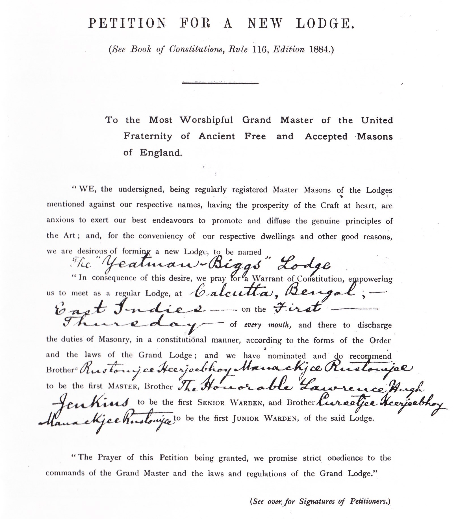 PETITION FOR A NEW LODGE.
(See Book of Constitutions, Rule 116, Edition 1884.)
To the Most Worshipful Grand Master of the United
Fraternity of Ancient Free and Accepted Masons
of England.
"WE, the undersigned, being regularly registered Master Masons of the Lodges
mentioned against our respective names, having the prosperity of the Craft at heart, are
anxious to exert our best endeavours to promote and diffuse the genuine principles of
the Art; and, for the conveniency of our respective dwellings and other good reasons,
we are desirous of forming a new Lodge, to be named
"The "Yeatman-Biggs" Lodge
"In consequence of this desire, we pray for a Warrant of Constitution, empowering
us to meet as a regular Lodge, at Calcutta, Bengal, —
East Indies — on the First —
Thursday — of every month, and there to discharge
the duties of Masonry, in a constitutional manner, according to the forms of the Order
and the laws of the Grand Lodge; and we have nominated and do recommend
Brother Rustomjee Heerjeebhoy Manackjee Rustomjee
to be the first MASTER, Brother The Honorable Lawrence Hugh
Jenkins to be the first SENIOR WARDEN, and Brother Cursetjee Heerjeebhoy
Manackjee Rustomjee to be the first JUNIOR WARDEN, of the said Lodge.
"The Prayer of this Petition being granted, we promise strict obedience to the
commands of the Grand Master and the laws and regulations of the Grand Lodge."
(See over for Signatures of Petitioners.)